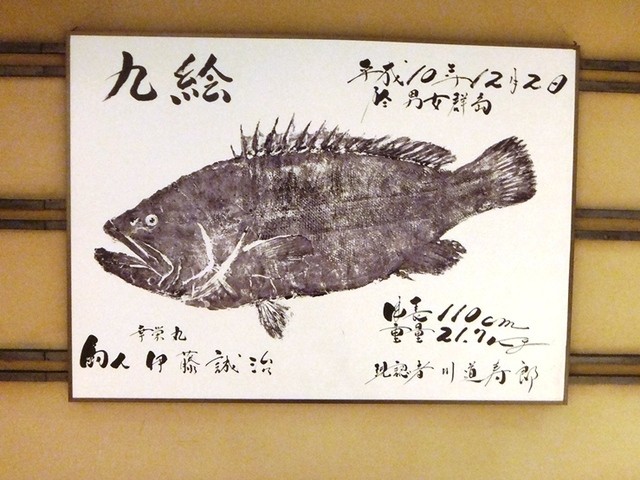 九絵
平成10年12月2日
於 男女群島
身長 110cm
重量 21.7kg
現認者 川道寿郎
幸栄丸
釣人 伊藤誠治